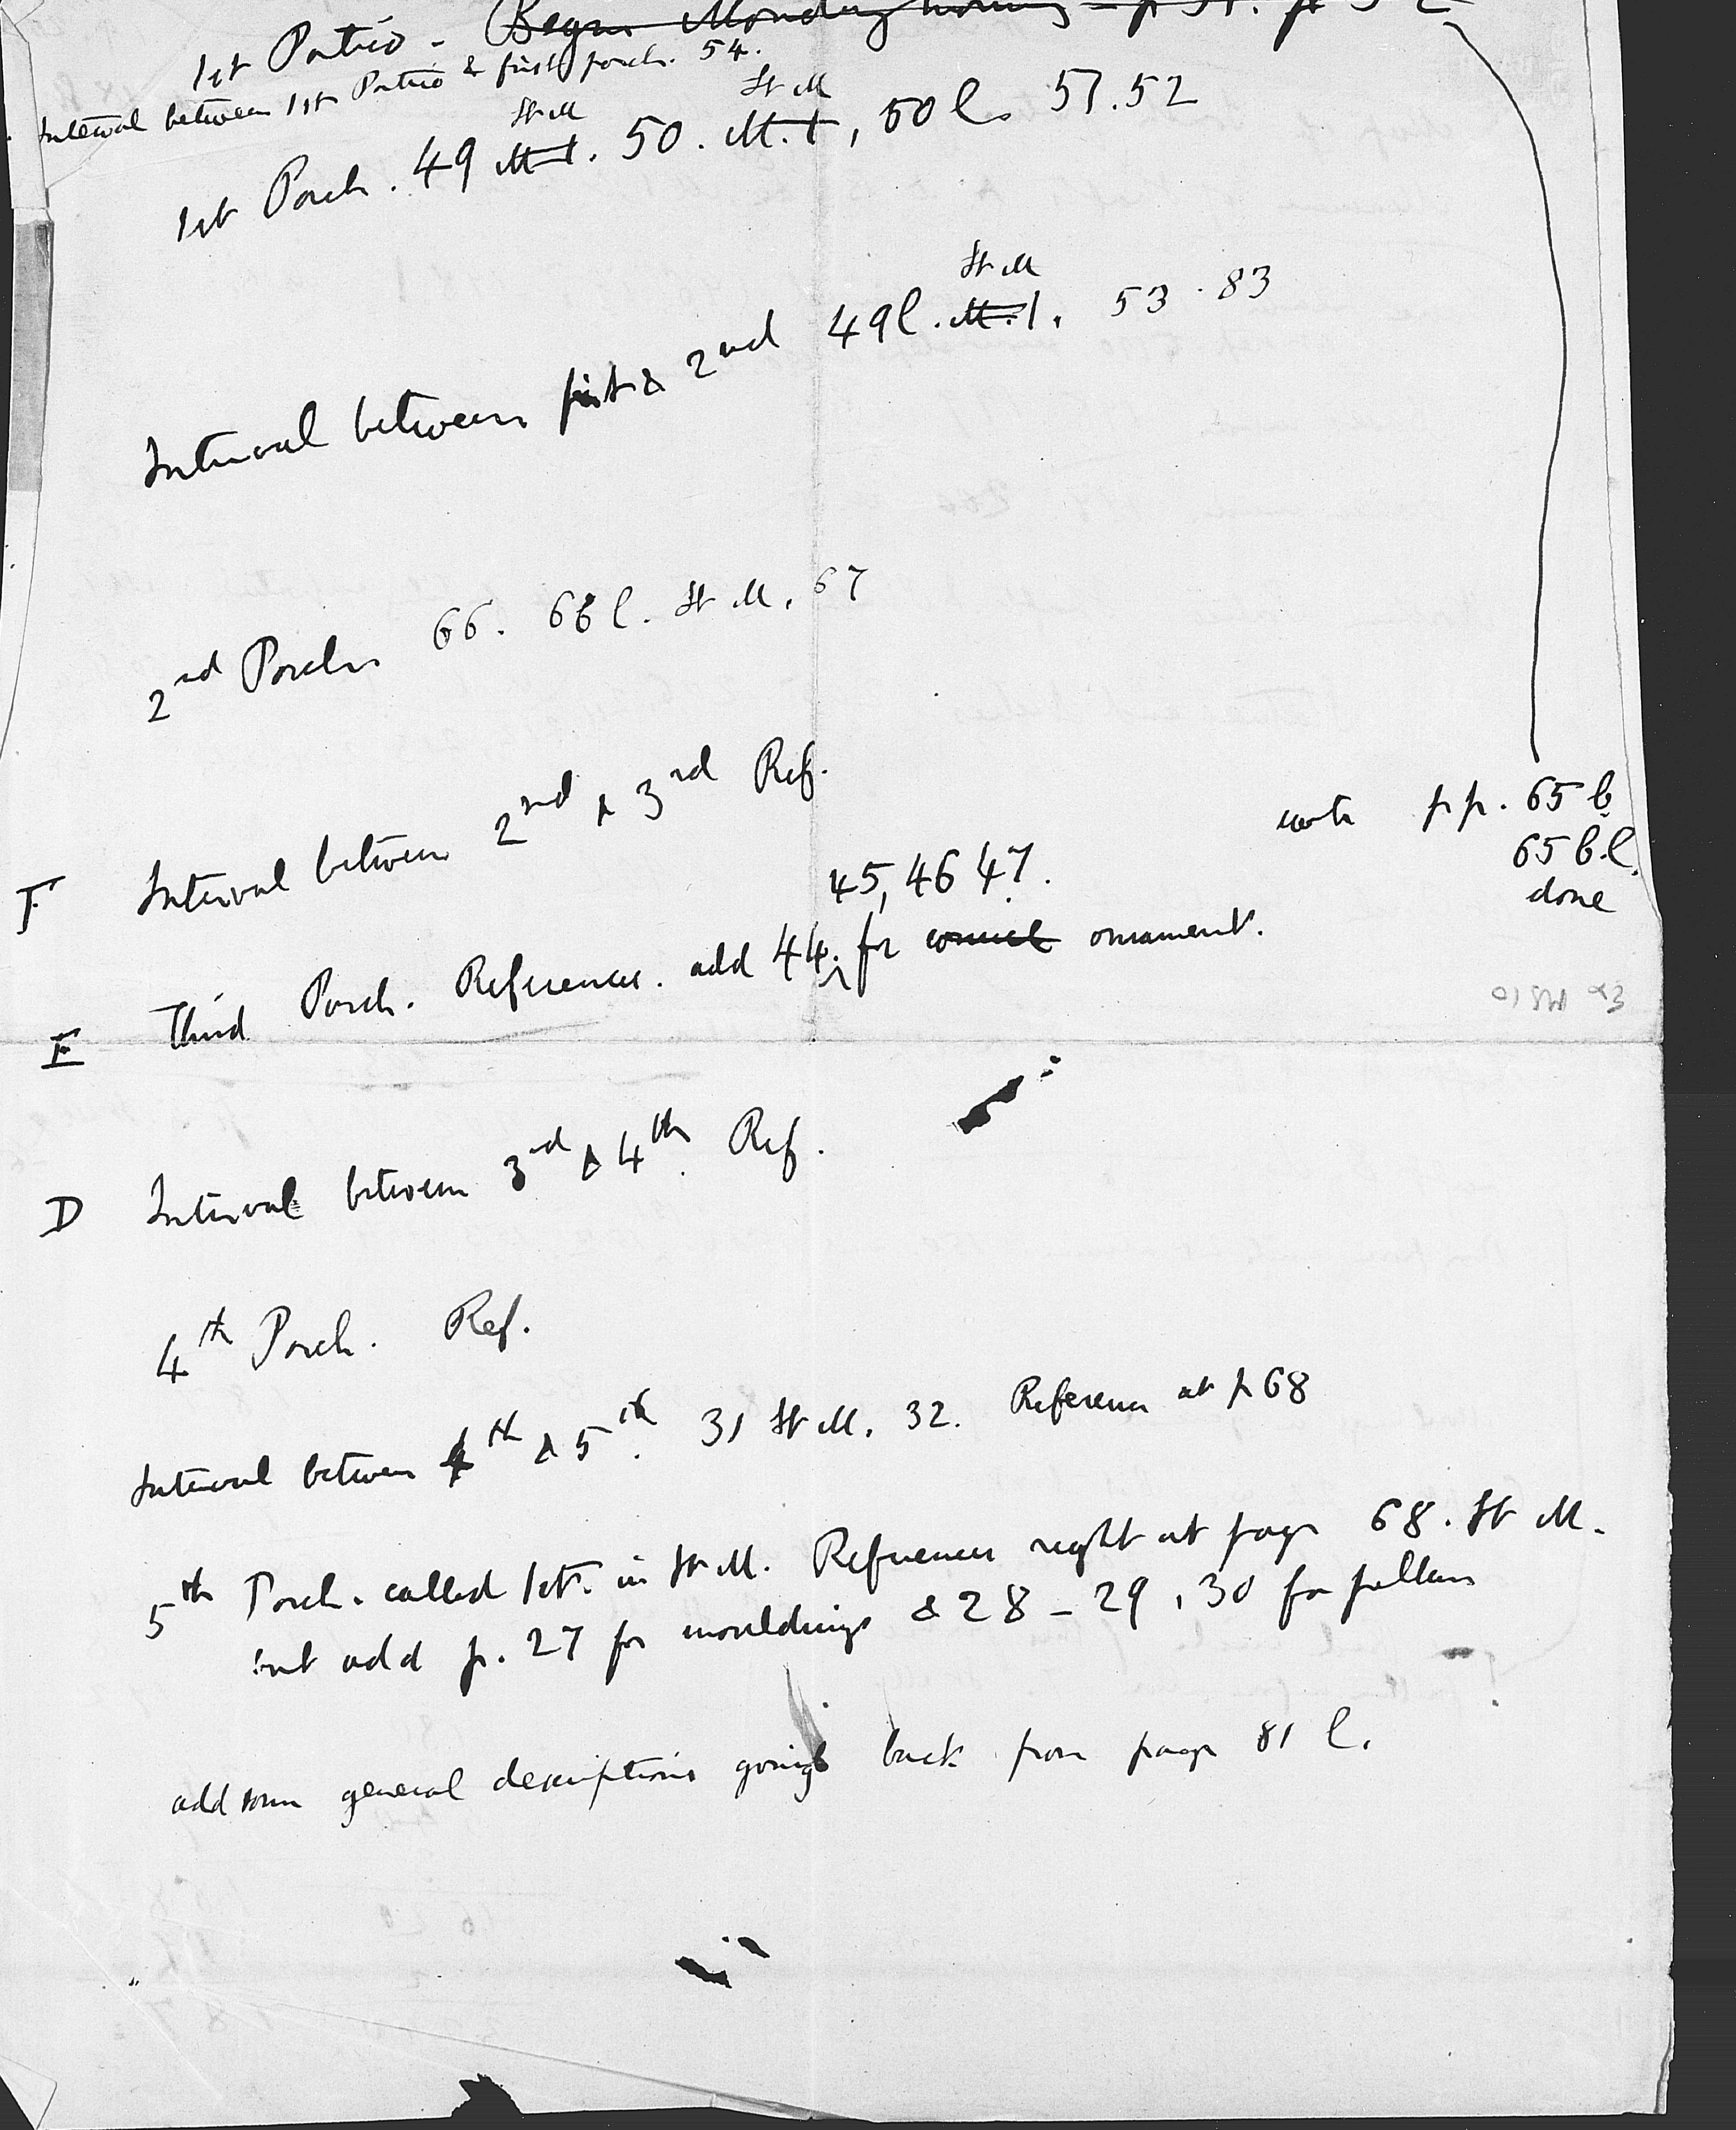 1st Portico - Begun Monday
Interval between 1st Portico & first porch. 54.
St M St M
1st Porch. 49 M.1. 50. M.1, 50 l. 51.52
St M
Interval between first & 2nd 49 l. M.1. 53.83
2nd Porch 66. 66 l. St M. 67
F Interval between 2nd & 3rd Ref.
note pp. 65 b
65 b.l.
done
45, 46 47.
E Third Porch. References. add 44. for ornament.
D Interval between 3rd & 4th. Ref.
4th Porch. Ref.
Interval between 4th & 5th. 31 St M. 32. Reference at p 68
5th Porch. called 1st. in St M. References right at page 68. St M.
but add p. 27 for mouldings & 28 - 29, 30 for pillars
add some general descriptions going back from page 81 l.